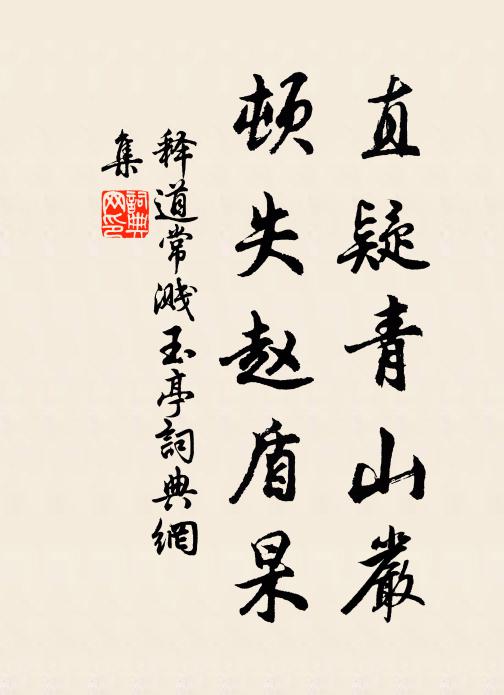 直疑青山巖
顿失赵盾杲
释道常溅玉亭詞典網
集
詞典
网印